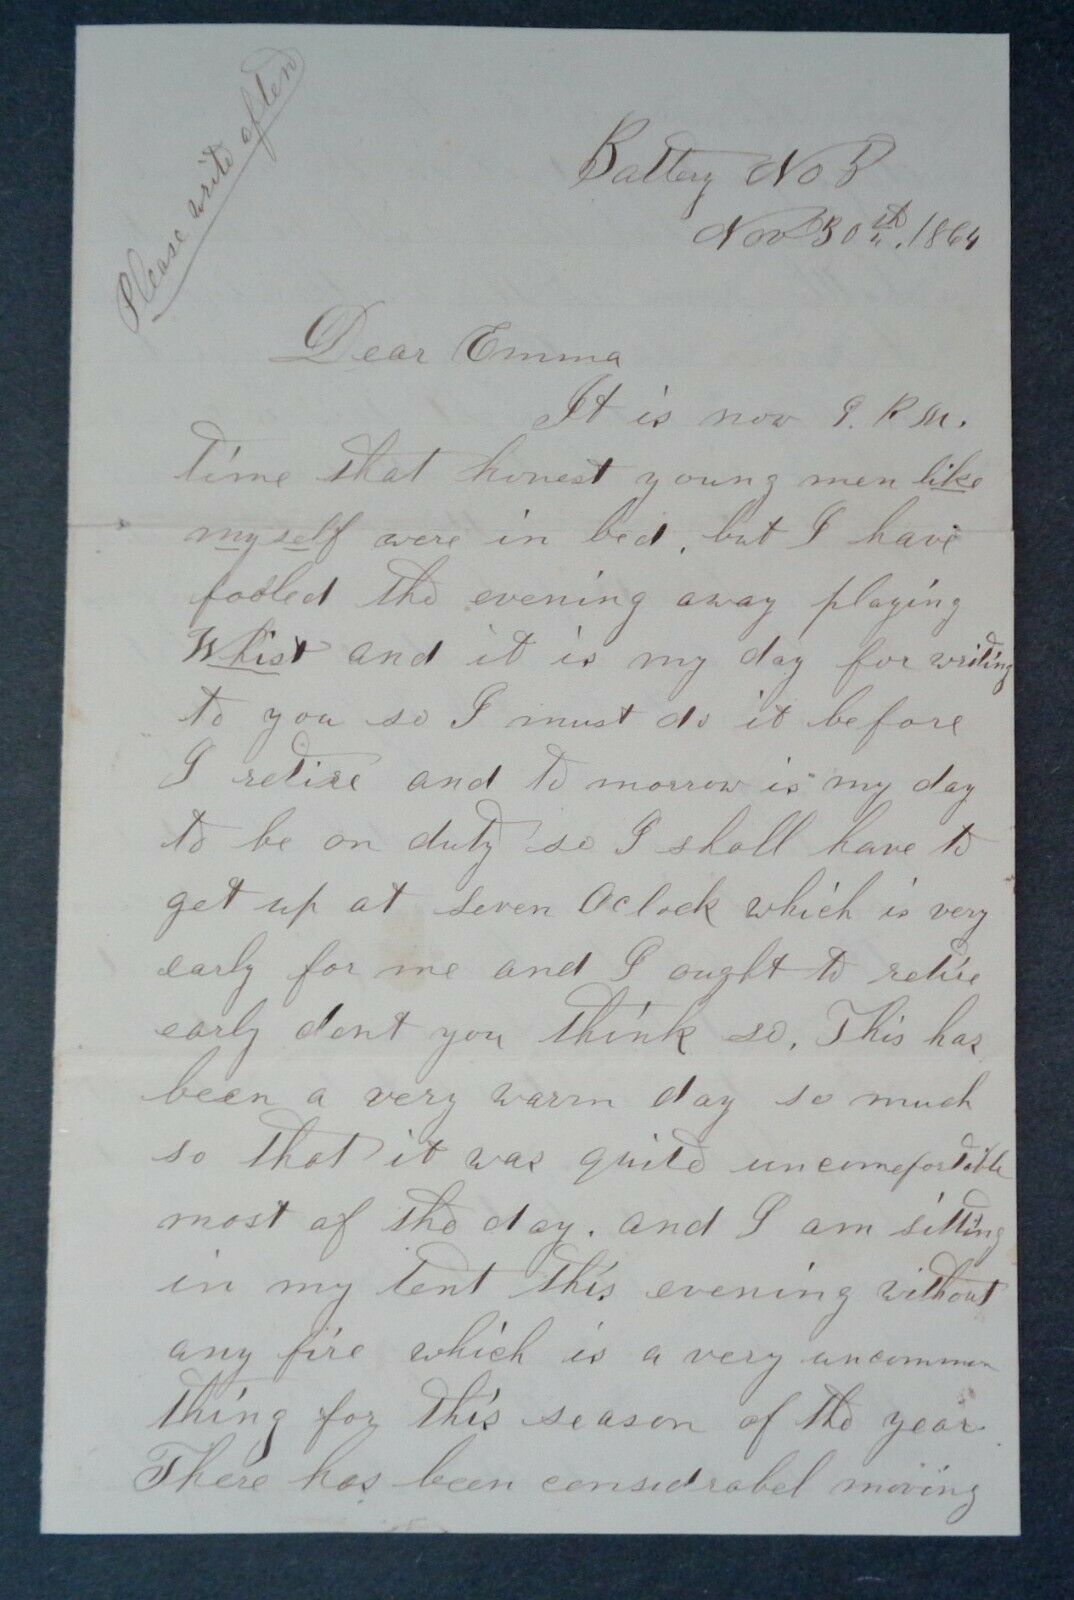 Please write often
Battery No 5
Nov 30th. 1864
Dear Emma
It is now 9. P. M.
time that honest young men like
myself were in bed, but I have
fooled the evening away playing
Whist and it is my day for writing
to you so I must do it before
I retire and to morrow is my day
to be on duty so I shall have to
get up at seven Oclock which is very
early for me and I ought to retire
early dont you think so. This has
been a very warm day so much
so that it was quite uncomefortable
most of the day. and I am sitting
in my tent this evening without
any fire which is a very uncommon
thing for this season of the year
There has been considrabel moving